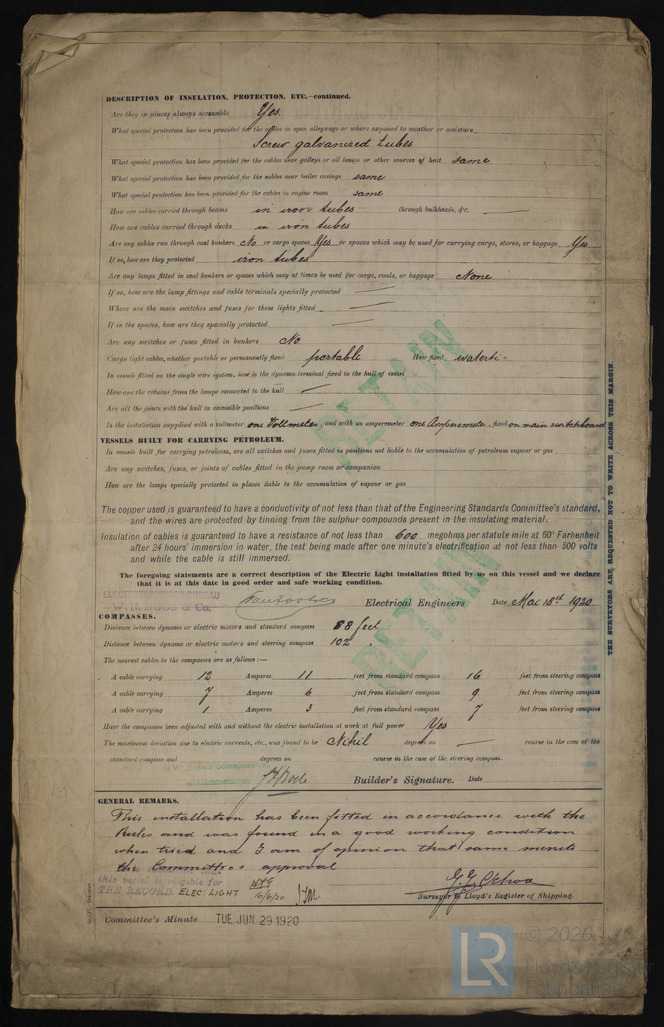 DESCRIPTION OF INSULATION, PROTECTION, ETC.—continued.
Are they in places always accessible Yes.
What special protection has been provided for the cables in open alleyways or where exposed to weather or moisture
Screw galvanized tubes
What special protection has been provided for the cables near galleys or oil lamps or other sources of heat same
What special protection has been provided for the cables near boiler casings same
What special protection has been provided for the cables in engine room same
How are cables carried through beams in iron tubes through bulkheads, &c. —
How are cables carried through decks in iron tubes
Are any cables run through coal bunkers No or cargo spaces Yes or spaces which may be used for carrying cargo, stores, or baggage Yes
If so, how are they protected iron tubes
Are any lamps fitted in coal bunkers or spaces which may at times be used for cargo, coals, or baggage None
If so, how are the lamp fittings and cable terminals specially protected —
Where are the main switches and fuses for these lights fitted —
If in the spaces, how are they specially protected —
Are any switches or fuses fitted in bunkers No
Cargo light cables, whether portable or permanently fixed portable How fixed waterti
In vessels fitted on the single wire system, how is the dynamo terminal fixed to the hull of vessel —
How are the returns from the lamps connected to the hull —
Are all the joints with the hull in accessible positions —
Is the installation supplied with a voltmeter one Voltmeter, and with an amperemeter one Amperemeter, fixed on main switchboard
VESSELS BUILT FOR CARRYING PETROLEUM.
In vessels built for carrying petroleum, are all switches and fuses fitted in positions not liable to the accumulation of petroleum vapour or gas
Are any switches, fuses, or joints of cables fitted in the pump room or companion
How are the lamps specially protected in places liable to the accumulation of vapour or gas
The copper used is guaranteed to have a conductivity of not less than that of the Engineering Standards Committee's standard,
and the wires are protected by tinning from the sulphur compounds present in the insulating material.
Insulation of cables is guaranteed to have a resistance of not less than 600 megohms per statute mile at 60° Farhenheit
after 24 hours' immersion in water, the test being made after one minute's electrification at not less than 500 volts
and while the cable is still immersed.
The foregoing statements are a correct description of the Electric Light installation fitted by us on this vessel and we declare
that it is at this date in good order and safe working condition.
& Co. Electrical Engineers Date Mai 18th 1920
COMPASSES.
Distance between dynamo or electric motors and standard compass 88 feet
Distance between dynamo or electric motors and steering compass 102 "
The nearest cables to the compasses are as follows:—
A cable carrying 12 Amperes 11 feet from standard compass 16 feet from steering compass
A cable carrying 7 Amperes 6 feet from standard compass 9 feet from steering compass
A cable carrying 1 Amperes 3 feet from standard compass 7 feet from steering compass
Have the compasses been adjusted with and without the electric installation at work at full power Yes
The maximum deviation due to electric currents, etc., was found to be Nihil degrees on — course in the case of the
standard compass and degrees on course in the case of the steering compass.
Builder's Signature. Date
GENERAL REMARKS.
This installation has been fitted in accordance with the
Rules and was found in a good working condition
when tried and I am of opinion that same merits
the Committee's approval
this vessel is eligible for
THE RECORD. ELEC: LIGHT 16/6/20
Surveyor to Lloyd's Register of Shipping.
Committee's Minute TUE. JUN. 29 1920
THE SURVEYORS ARE REQUESTED NOT TO WRITE ACROSS THIS MARGIN
RETAIN
RETAIN
LR
© 2020
Lloyd's Register
Foundation